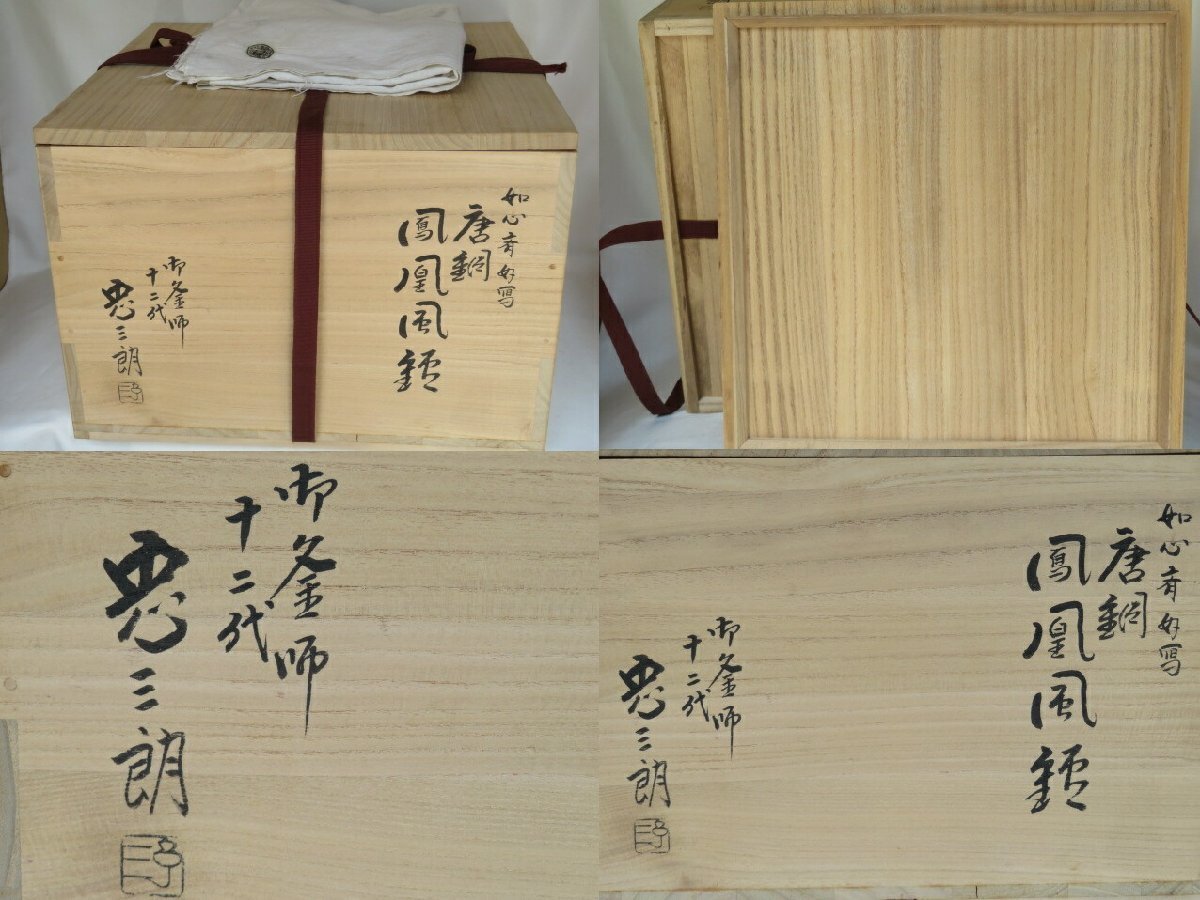 如心斎好寫
唐銅
鳳凰風鑪
御釜師
十二代
忠三朗
御釜師
十二代
忠三朗
如心斎好寫
唐銅
鳳凰風鑪
御釜師
十二代
忠三朗